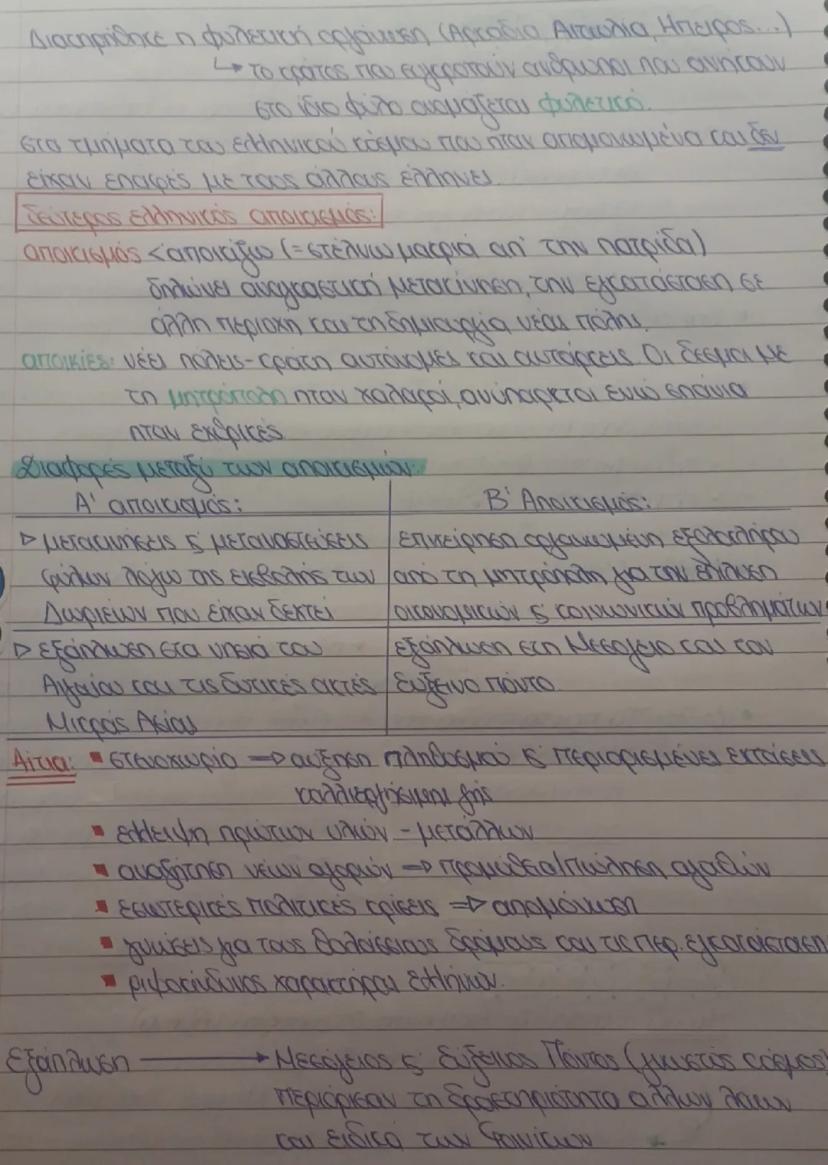 Διατηρήθηκε η φυλετική οργάνωση (Αρκαδία Αιτωλία, Ήπειρος...)
↳ το κράτος που συγκροτούν άνθρωποι που ανήκουν
στο ίδιο φύλο ονομάζεται φυλετικό.
στα τμήματα του ελληνικού κόσμου που ήταν απομονωμένα και δεν
είχαν επαφές με τους άλλους έλληνες.
δεύτερος ελληνικός αποικισμός:
αποικισμός < αποικίζω (= στέλνω μακριά απ' την πατρίδα)
δηλώνει αναγκαστική μετακίνηση, την εγκατάσταση σε
άλλη περιοχή και τη δημιουργία νέας πόλης.
αποικίες: νέες πόλεις-κράτη αυτόνομες και αυτάρκεις. Οι δεσμοί με
τη μητρόπολη ήταν χαλαροί, ανύπαρκτοι ενώ σπάνια
ήταν εχθρικές
Διαφορές μεταξύ των αποικισμών:
Α' αποικισμός: Β' Αποικισμός:
▷ μετακινήσεις ϛ' μεταναστεύσεις επιχείρηση οργανωμένη εξολοκλήρου
φύλων λόγω της εισβολής των από τη μητρόπολη για την επίλυση
Δωριέων που είχαν δεχτεί οικονομικών ϛ' κοινωνικών προβλημάτων
▷ εξάπλωση στα νησιά του εξάπλωση στη Μεσόγειο και τον
Αιγαίου και τις δυτικές ακτές Εύξεινο πόντο.
Μικράς Ασίας
Αίτια: ▪ στενοχωρία ⇒ αύξηση πληθυσμού ϛ' περιορισμένες εκτάσεις
καλλιεργήσιμης γης
▪ έλλειψη πρώτων υλών - μετάλλων
▪ αναζήτηση νέων αγορών ⇒ προμήθεια/πώληση αγαθών
▪ εσωτερικές πολιτικές κρίσεις ⇒ απομόνωση
▪ γνώσεις για τους θαλάσσιους δρόμους και τις περ. εγκατάσταση
▪ ριψοκίνδυνος χαρακτήρας ελλήνων.
εξάπλωση → Μεσόγειος ϛ' Εύξεινος Πόντος (γνωστός κόσμος)
περιόρισαν τη δραστηριότητα άλλων λαών
και ειδικά των Φοινίκων